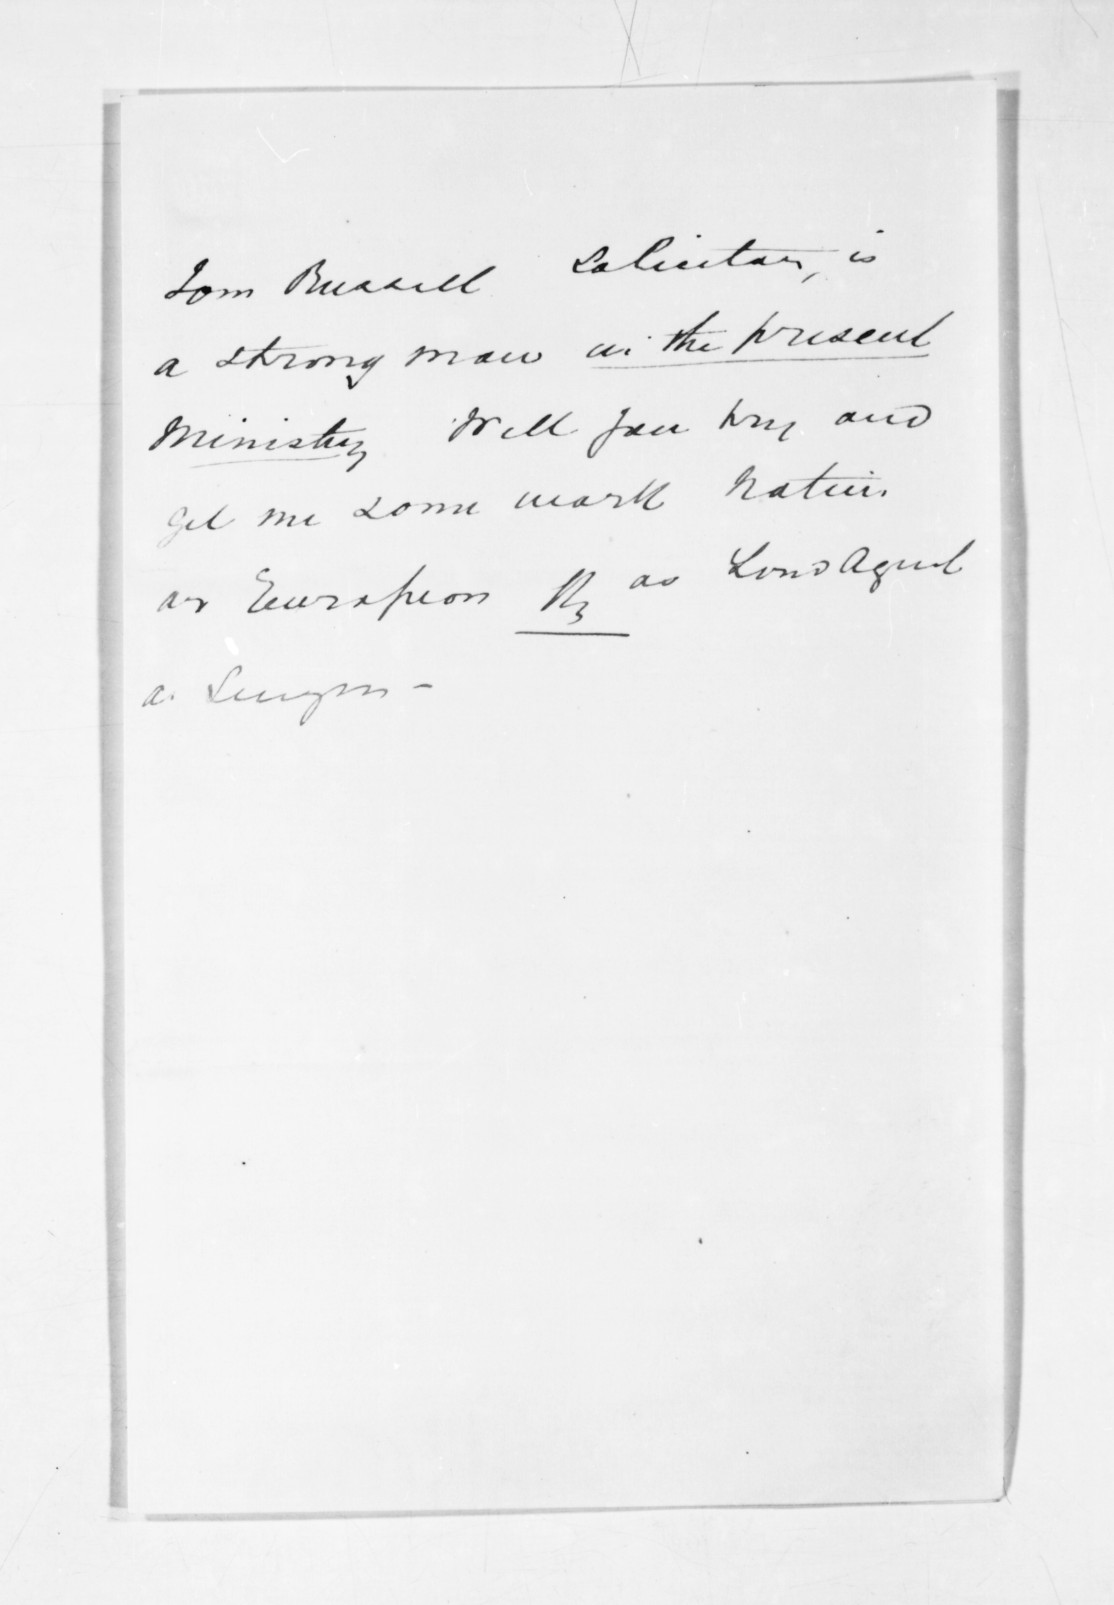 Tom Russell Solicitor, is
a strong man in the present
Ministry Will you try and
get me some work Native
or European as Land Agent